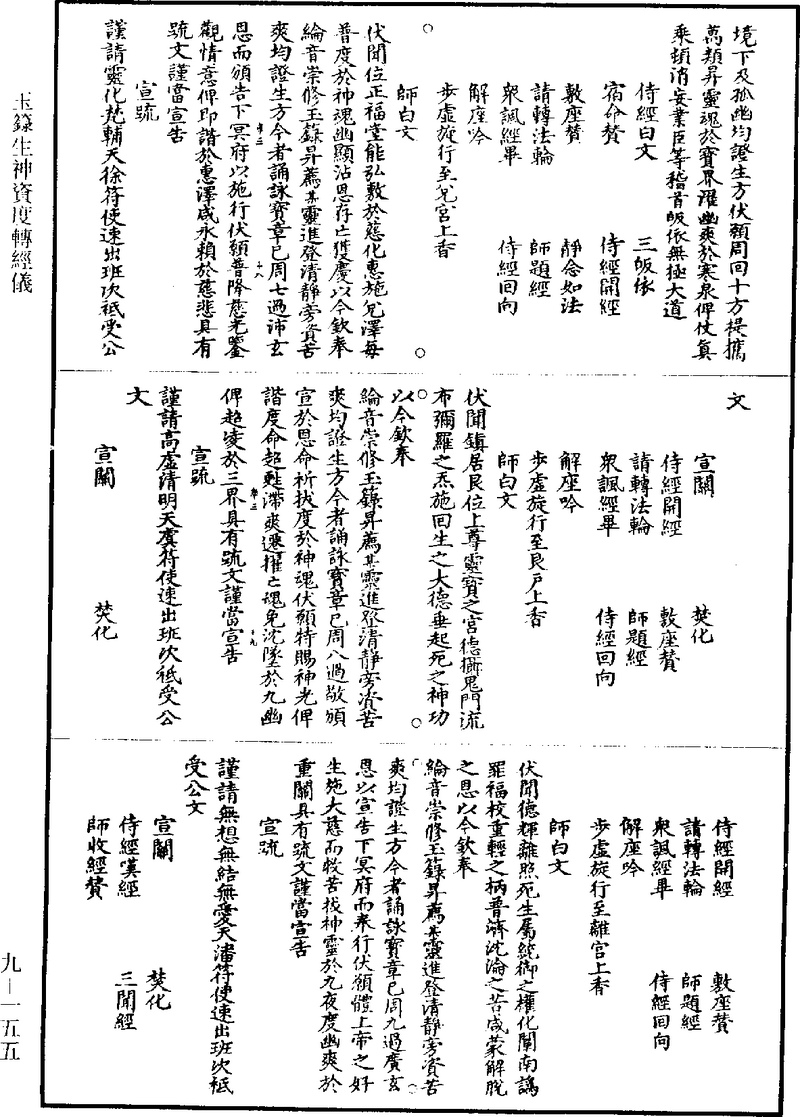 境下及孤幽均證生方伏願周回十方提攜
萬類昇靈魂於寶界濯幽爽於寒泉俾仗真
乘頓消妄業臣等稽首皈依無極大道
侍經白文 三皈依
宿命贊 侍經開經
敷座贊 靜念如法
請轉法輪 師題經
衆諷經畢 侍經回向
解座吟
步虛旋行至兌宮上香
師白文
伏聞位正福堂能弘敷於慈化惠施兌澤每
普度於神魂幽顯沾恩存亡獲慶以今欽奉
綸音崇修玉籙昇薦某靈進登清靜旁資苦
爽均證生方今者誦詠寶章已周七過沛玄
恩而頒告下冥府以施行伏願普降慈光鑒
觀情意俾即諧於惠澤咸永賴於慈悲具有
䟽文謹當宣告
宣䟽
謹請靈化梵輔天徐符使速出班次祇受公
文
宣關 焚化
侍經開經 敷座贊
請轉法輪 師題經
衆諷經畢 侍經回向
解座吟
步虛旋行至艮戶上香
師白文
伏聞鎮居艮位上尊靈寶之宮德攝鬼門流
布彌羅之炁施回生之大德垂起死之神功
以今欽奉
綸音崇修玉籙昇薦某靈進登清靜旁資苦
爽均證生方今者誦詠寶章已周八過敬頒
宣於恩命祈拔度於神魂伏願特賜神光俾
諧度命超甦滯爽遷擢亡魂免沈墜於九幽
俾超凌於三界具有䟽文謹當宣告
宣䟽
謹請高虛清明天虞符使速出班次祇受公
文
宣關 焚化
侍經開經 敷座贊
請轉法輪 師題經
衆諷經畢 侍經回向
解座吟
步虛旋行至離宮上香
師白文
伏聞德輝離照死生屬統御之權化闡南
羅福校重輕之柄普濟沈淪之苦咸蒙解脫
之恩以今欽奉
綸音崇修玉籙昇薦某靈進登清靜旁資苦
爽均證生方今者誦詠寶章已周九過廣玄
恩以宣告下冥府而奉行伏願體上帝之好
生施大慈而救苦拔神靈於九夜度幽爽於
重關具有䟽文謹當宣告
宣䟽
謹請無想無結無愛天潘符使速出班次祇
受公文
宣關 焚化
侍經嘆經 三聞經
師收經贊
玉籙生神資度轉經儀
九—一五五